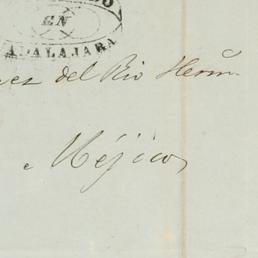 DO
EN
ADALAJARA
ez del Rio Herm.
e Méjico